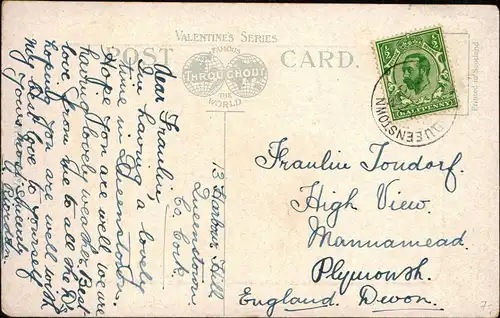 VALENTINE'S SERIES
POST CARD.
FAMOUS
THROUGHOUT
THE
WORLD
Printed in Scotland
½ ½
HALFPENNY
QUEENSTOWN
13 Harbour Hill
Queenstown
Co. Cork.
Dear Fraulin,
I'm having a lovely
time in Queenstown.
Hope you are well, we are
having lovely weather. Best
love from me to all the D's
hoping you are well with
My best love to yourself
yours most sincerely
Fraulin Tondorf.
High View.
Mannamead.
Plymouth.
England. Devon.